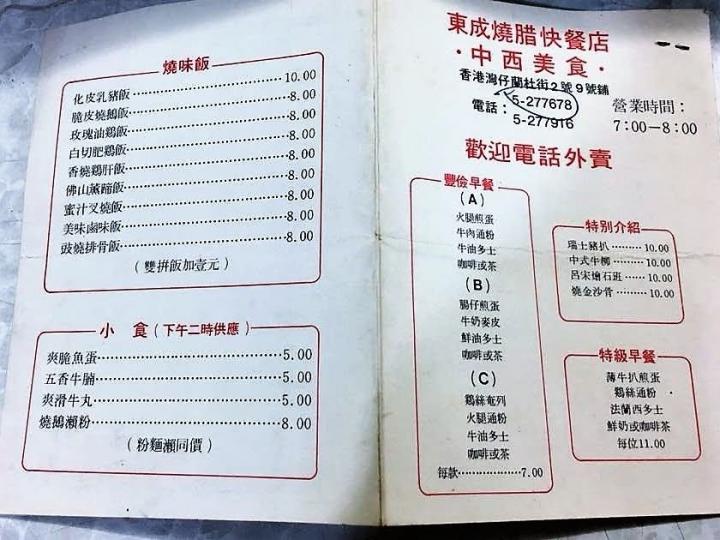 燒味飯
化皮乳豬飯 10.00
脆皮燒鵝飯 8.00
玫瑰油鷄飯 8.00
白切肥鷄飯 8.00
香燒鷄肝飯 8.00
佛山薰蹄飯 8.00
蜜汁叉燒飯 8.00
美味鹵味飯 8.00
豉燒排骨飯 8.00
(雙拼飯加壹元)
小食(下午二時供應)
爽脆魚蛋 5.00
五香牛腩 5.00
爽滑牛丸 5.00
燒鵝瀨粉 8.00
(粉麵瀨同價)
東成燒腊快餐店
·中西美食·
香港灣仔蘭杜街2號9號鋪
電話：5-277678
5-277916
營業時間：
7:00－8:00
歡迎電話外賣
豐儉早餐
(A)
火腿煎蛋
牛肉通粉
牛油多士
咖啡或茶
(B)
腸仔煎蛋
牛奶麥皮
鮮油多士
咖啡或茶
(C)
鷄絲奄列
火腿通粉
牛油多士
咖啡或茶
每款 7.00
特別介紹
瑞士豬扒 10.00
中式牛柳 10.00
呂宋燴石班 10.00
燒金沙骨 10.00
特級早餐
薄牛扒煎蛋
鷄絲通粉
法蘭西多士
鮮奶或咖啡茶
每位11.00